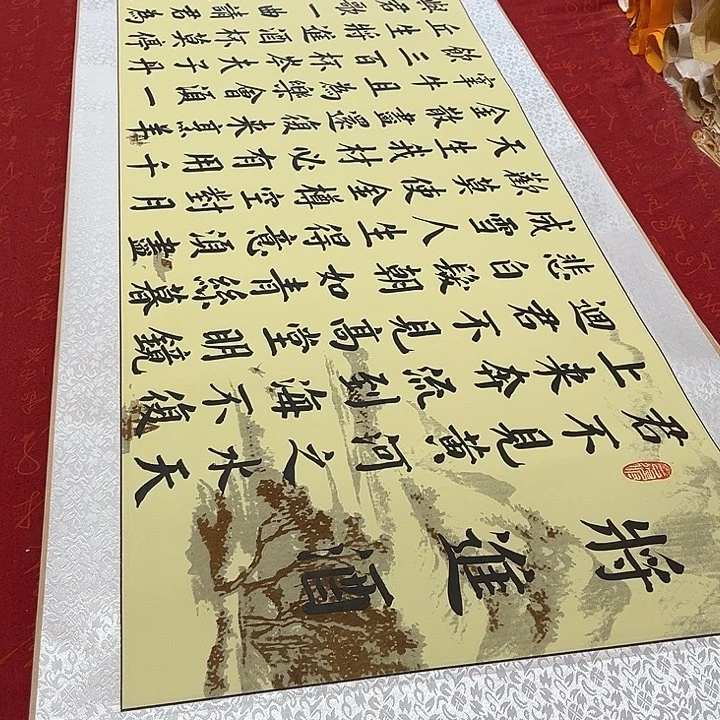 將進酒
君不見黃河之水天
上來奔流到海不復
迴君不見高堂明鏡
悲白髮朝如青絲暮
成雪人生得意須盡
歡莫使金樽空對月
天生我材必有用千
金散盡還復來烹羊
宰牛且為樂會須一
飲三百杯岑夫子丹
丘生將進酒杯莫停
與君歌一曲請君為